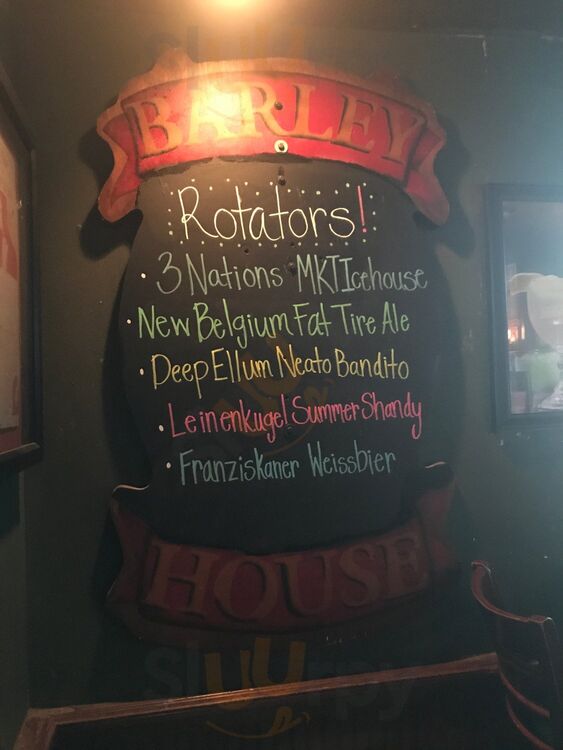 BARLEY
Rotators!
• 3 Nations MKT Icehouse
• New Belgium Fat Tire Ale
• Deep Ellum Neato Bandito
• Leinenkugel Summer Shandy
• Franziskaner Weissbier
HOUSE
sluurpy